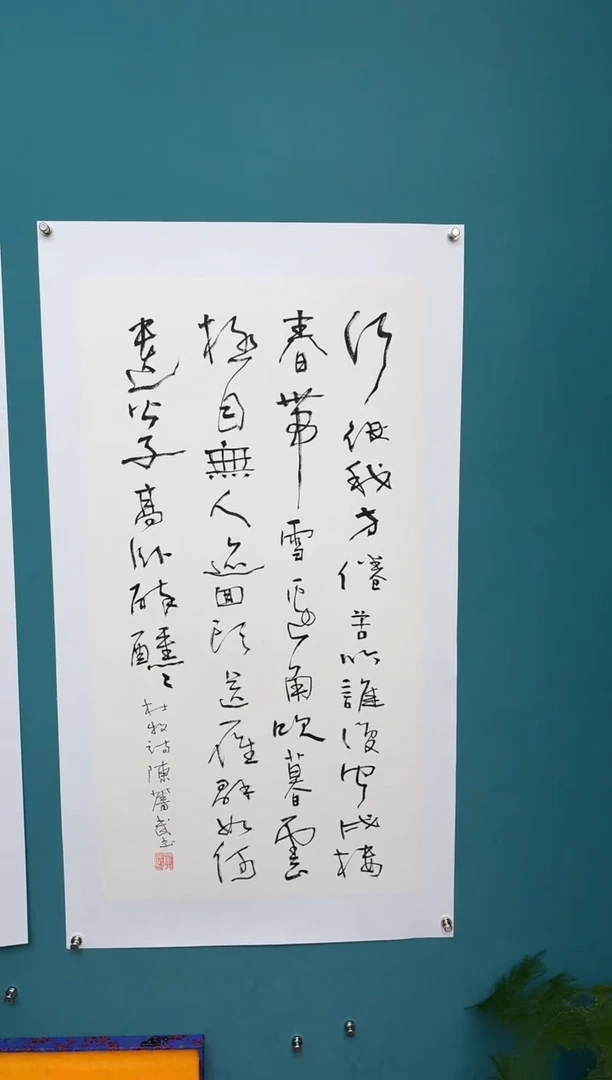 行役我方倦苦吟誰復聞戍樓
春帶雪邊角吹暮雲
極目無人迹回頭送雁群如何
遣公子高臥醉醺〻
杜牧詩 陳